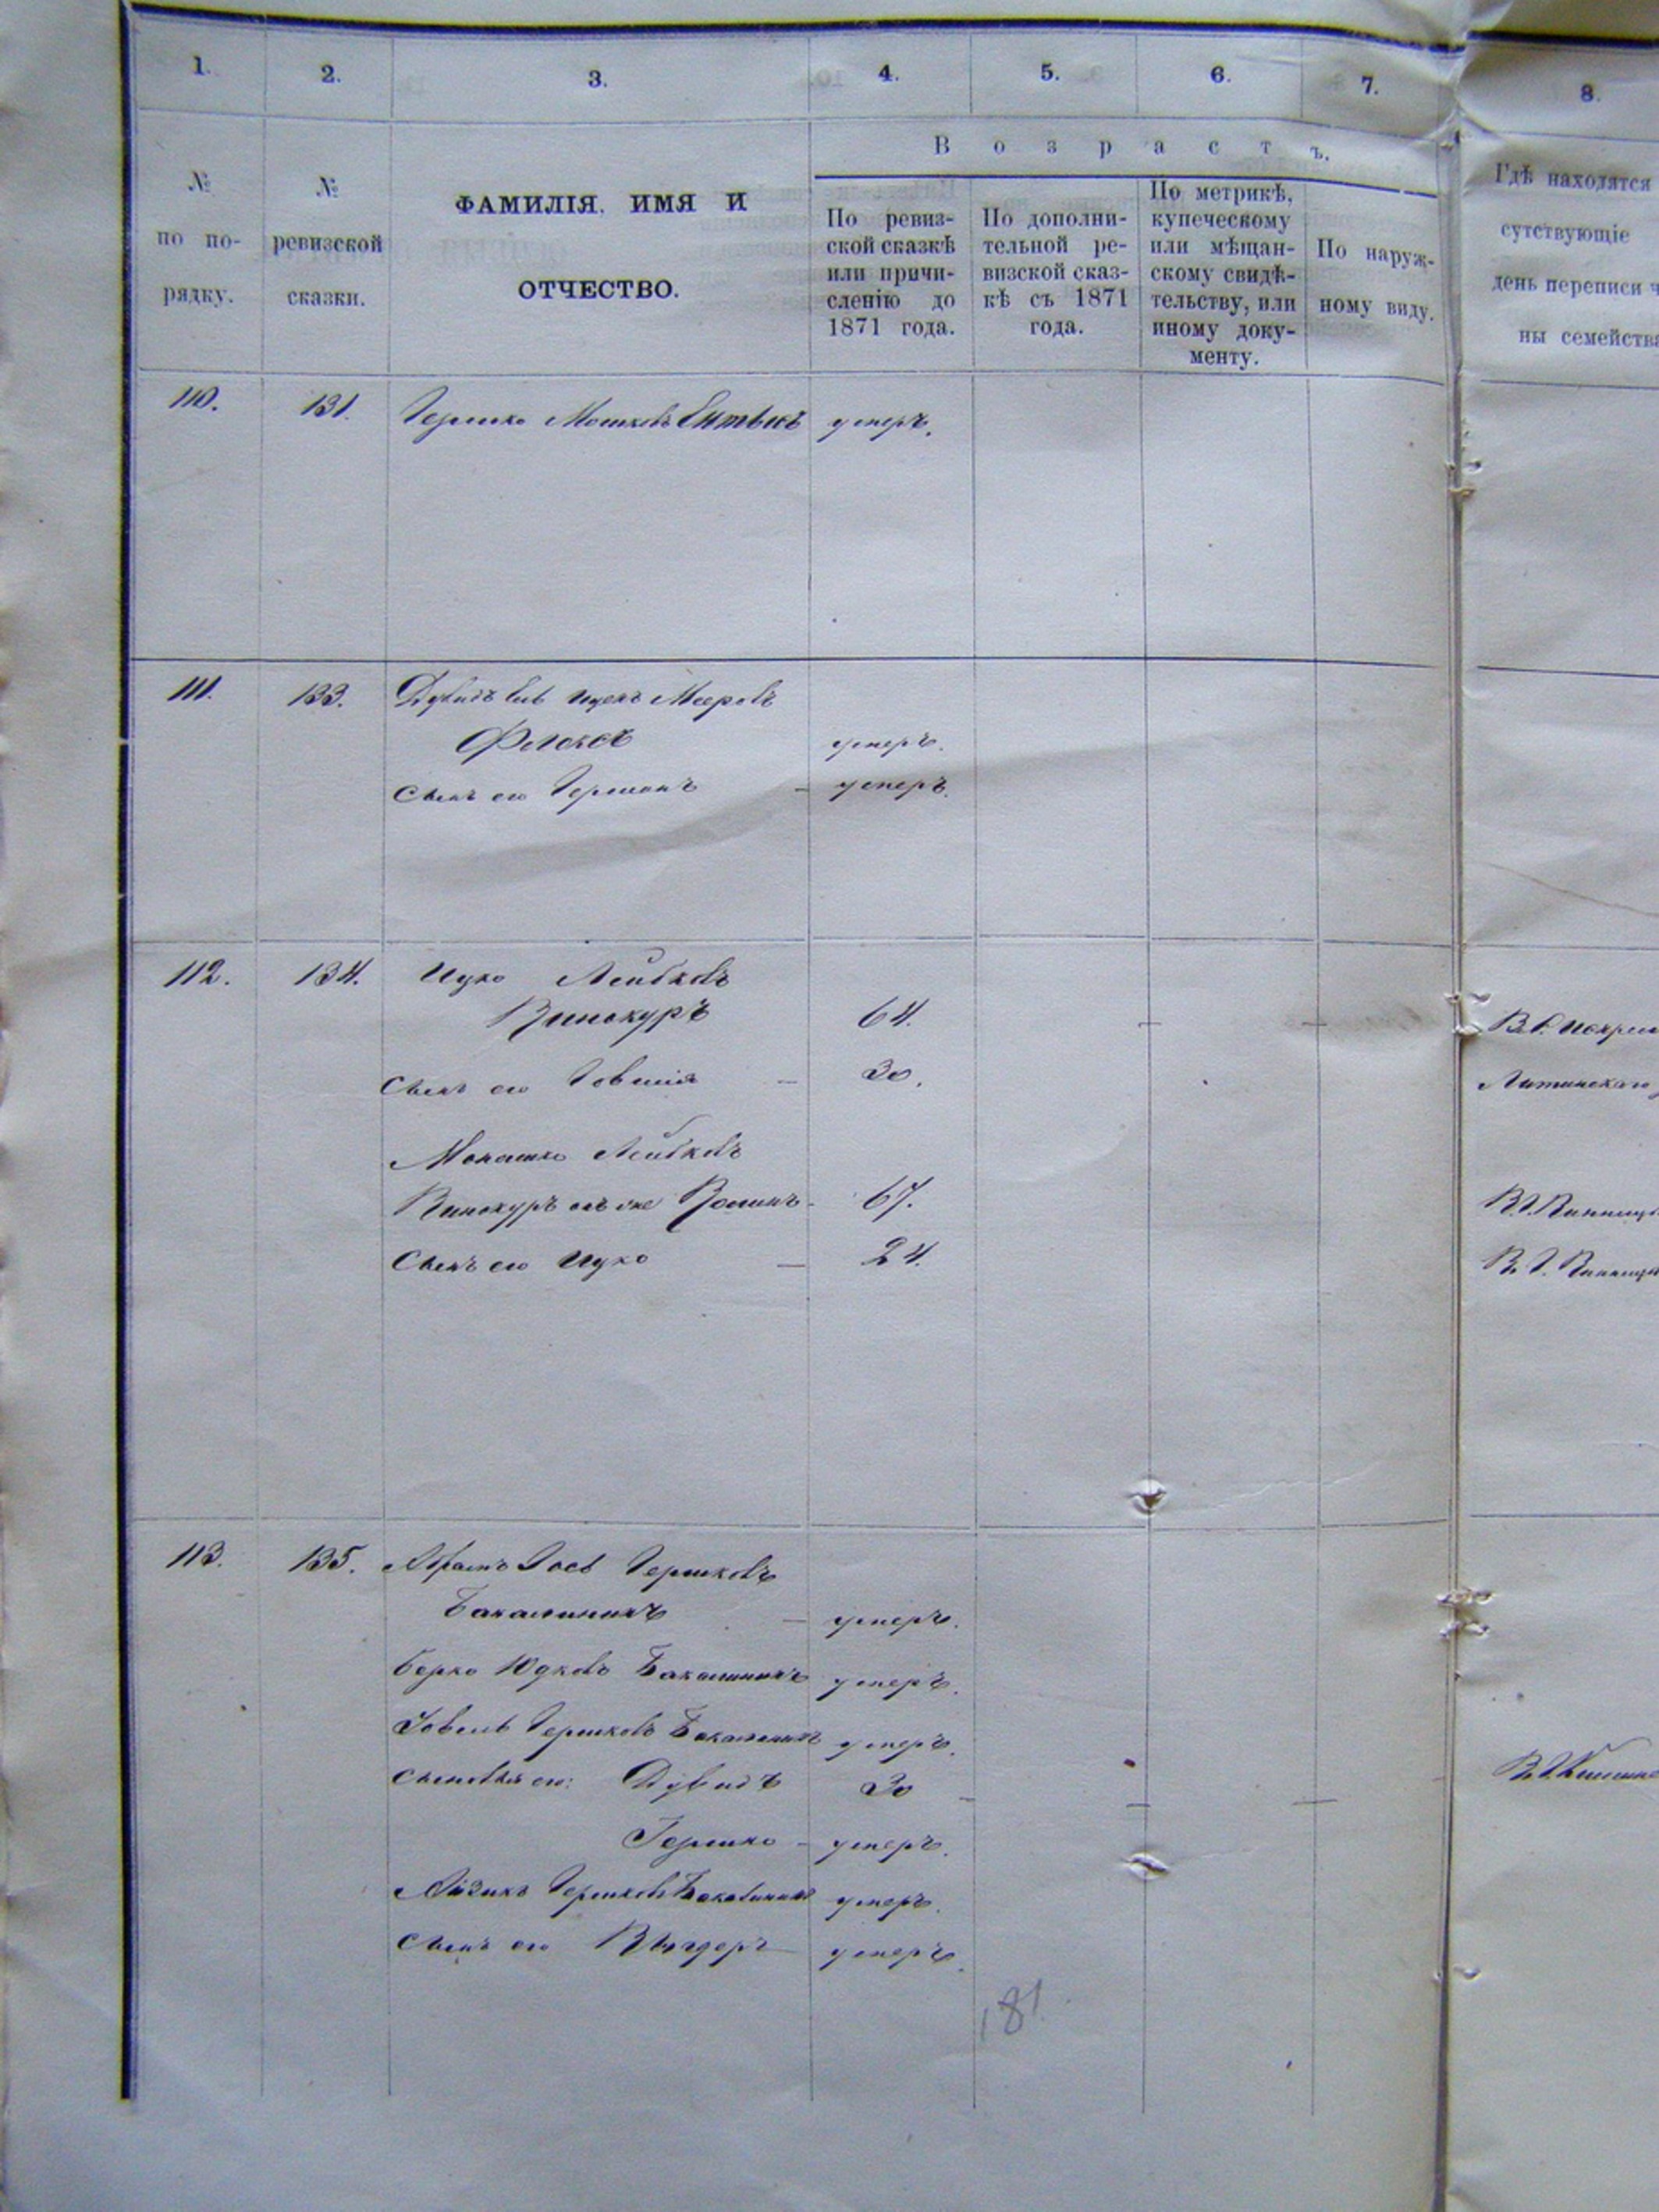 1. 2. 3. 4. 5. 6. 7. 8.
В о з р а с т ъ.
№ по по-рядку.
№ ревизской сказки.
ФАМИЛІЯ, ИМЯ И
ОТЧЕСТВО.
По ревиз-
ской сказкѣ
или причи-
сленію до
1871 года.
По дополни-
тельной ре-
визской сказ-
кѣ съ 1871
года.
По метрикѣ,
купеческому
или мѣщан-
скому свидѣ-
тельству, или
иному доку-
менту.
По наруж-
ному виду.
Гдѣ находятся
сутствующіе
день переписи ч
ны семейства
110. 131. Гершко Мошковъ умеръ.
111. 133. Дувидъ Ицекъ Мееровъ
умеръ.
Сынъ его Гершонъ – умеръ.
112. 134. Ицко Лейбковъ
Винокуръ 64.
Сынъ его Іовшія – 30.
Литинскаго
Монашко Лейбковъ
Винокуръ онъ же 67.
Сынъ его Ицко – 24.
113. 135. Абрамъ Іось Гершковъ
Бакалиникъ – умеръ.
Берко Юдковъ Бакалиникъ умеръ.
Іовель Гершковъ Бакалиникъ умеръ.
Сыновья его: Дувидъ 30
Гершко – умеръ.
Айзикъ Гершковъ Бакалиникъ умеръ.
Сынъ его умеръ.
181